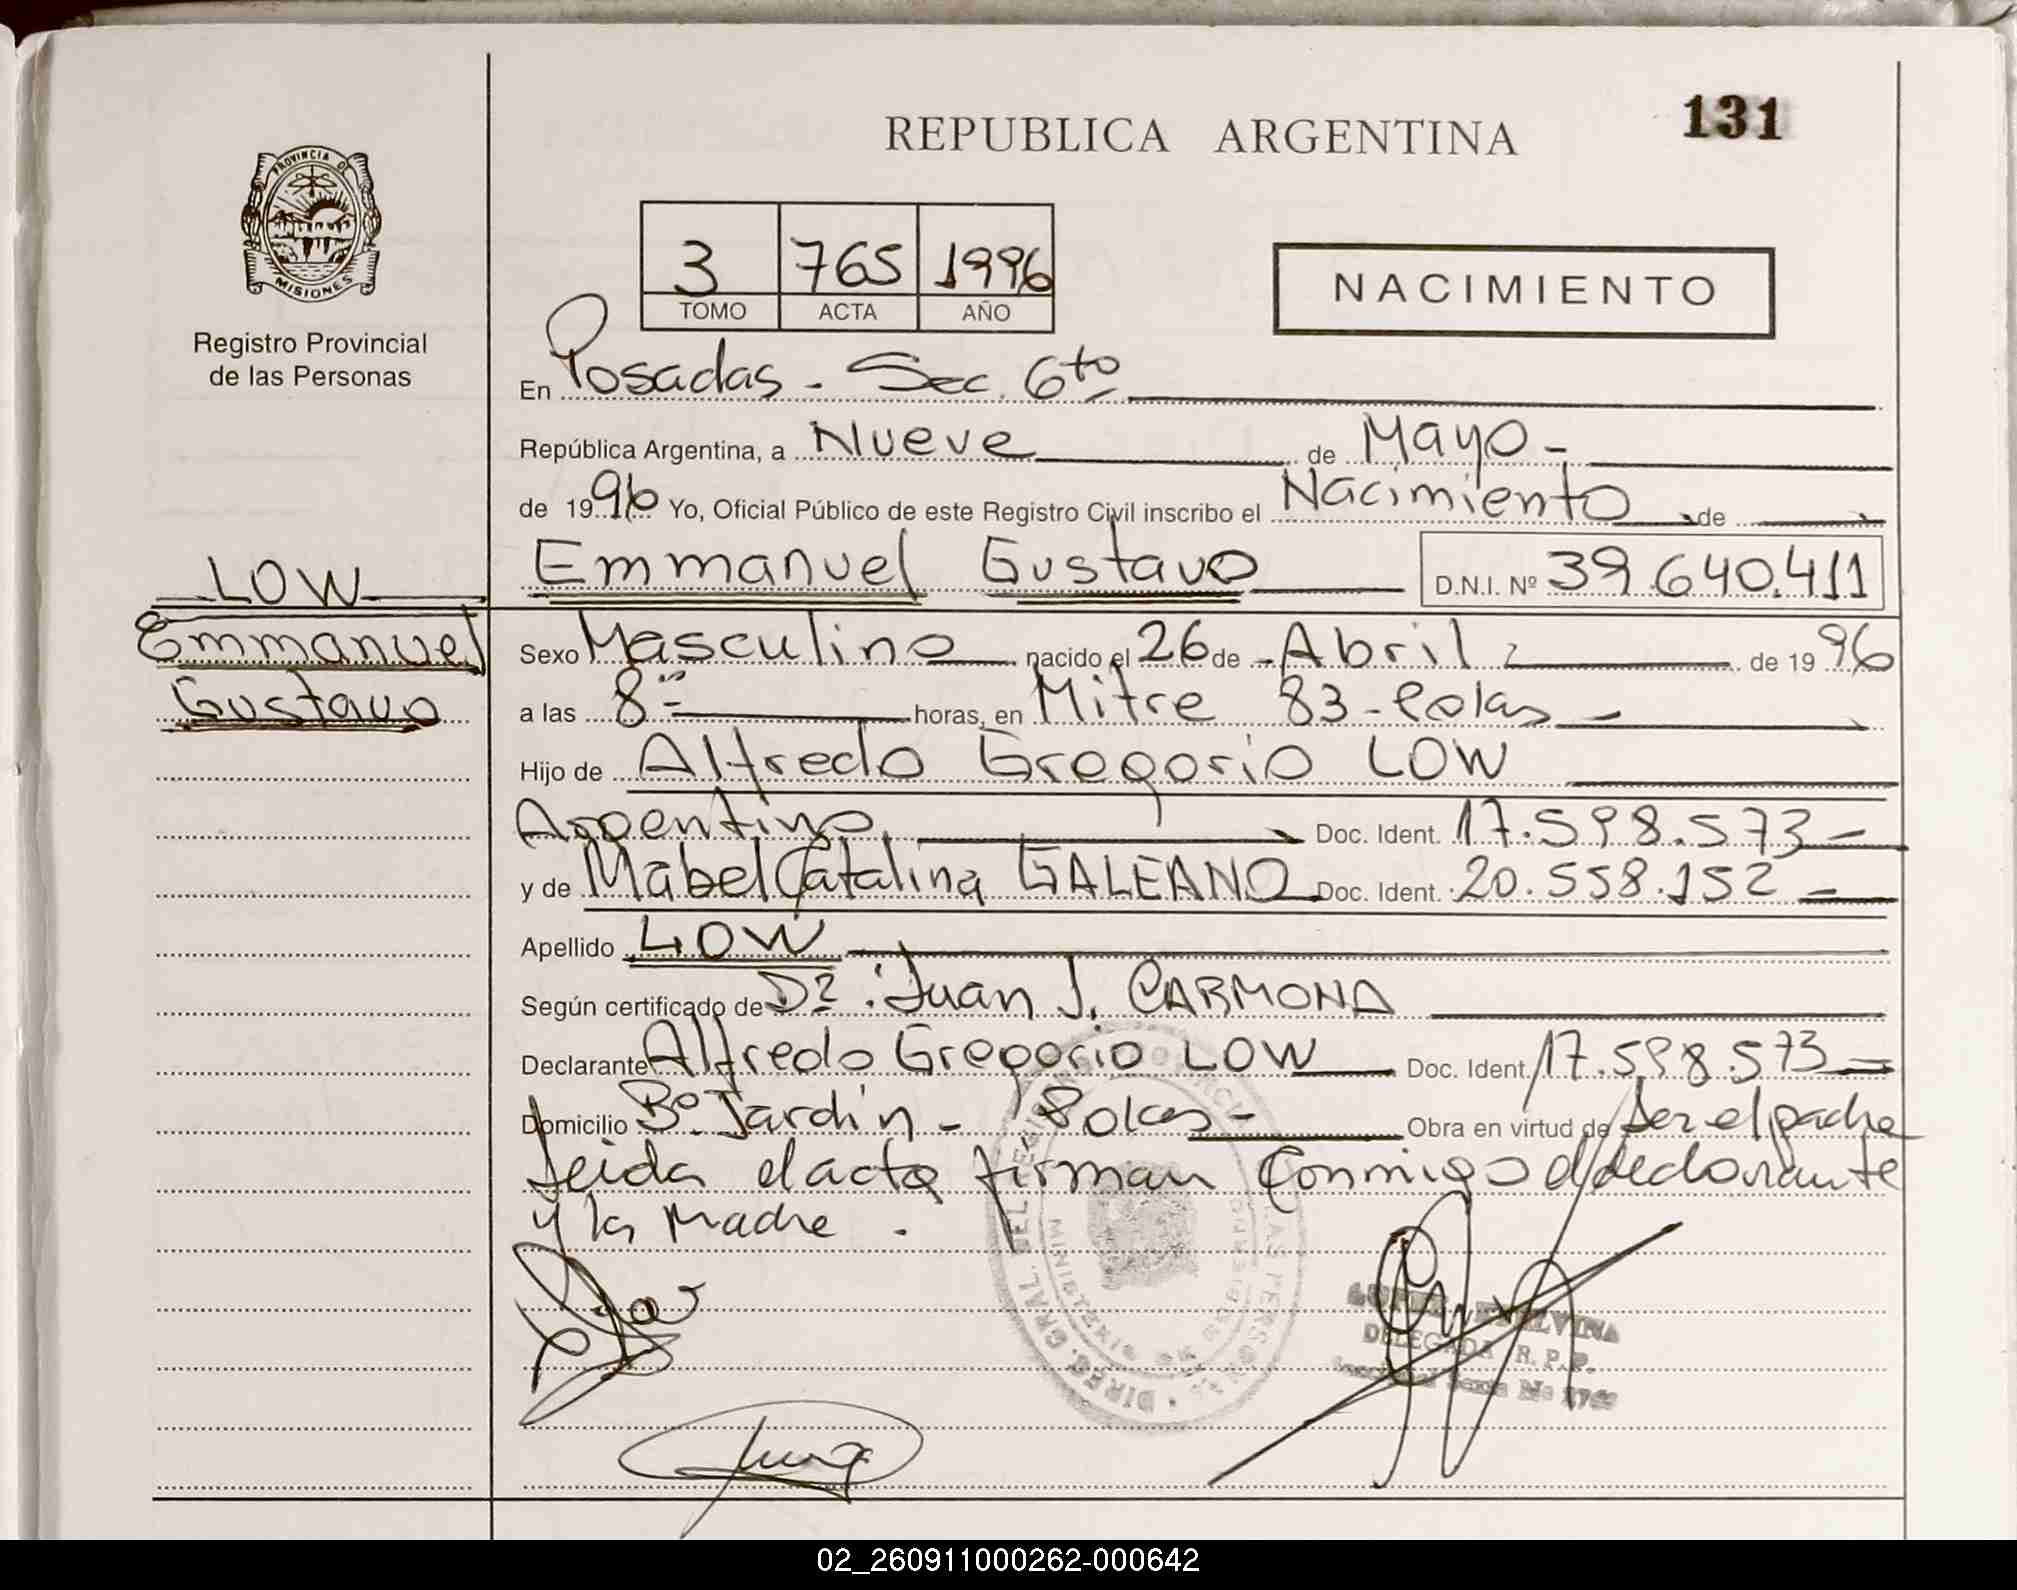 131
REPUBLICA ARGENTINA
PROVINCIA DE
MISIONES
Registro Provincial
de las Personas
3 765 1996
TOMO ACTA AÑO
NACIMIENTO
En Posadas - Sec. 6to
República Argentina, a Nueve de Mayo -
de 1996 Yo, Oficial Público de este Registro Civil inscribo el Nacimiento de
Emmanuel Gustavo D.N.I. Nº 39.640.411
LOW
Emmanuel
Gustavo
Sexo Masculino nacido el 26 de Abril de 1996
a las 8 horas, en Mitre 83 - Pokas
Hijo de Alfredo Gregorio LOW
Argentino Doc. Ident. 17.598.573 -
y de Mabel Catalina GALEANO Doc. Ident. 20.558.152 -
Apellido LOW
Según certificado de Dr. Juan J. CARMONA
Declarante Alfredo Gregorio LOW Doc. Ident. 17.598.573 -
Domicilio Bº Jardín - Pokas - Obra en virtud de ser el padre
Leida el acta firman conmigo el declarante
y la Madre .
DELEGADA R.P.P.
02_260911000262-000642